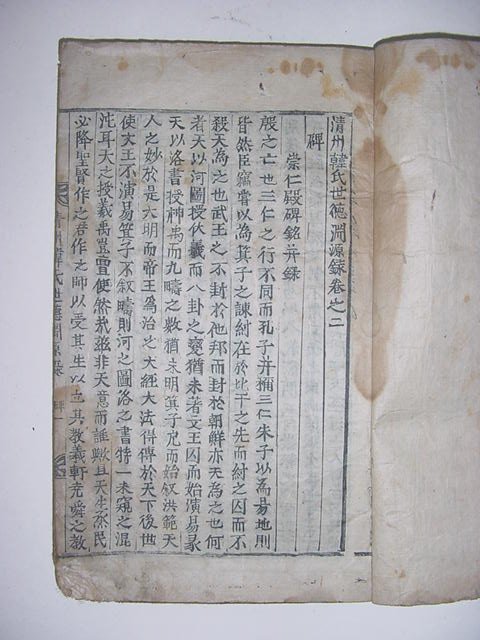 清州韓氏世德淵源錄卷之二
碑
崇仁殿碑銘并錄
殷之亡也三仁之行不同而孔子并稱三仁朱子以為易地則
皆然臣竊嘗以為箕子之諫紂在於比干之先而紂之囚而不
殺天為之也武王之不封於他邦而封於朝鮮亦天為之也何
者天以河圖授伏羲而八卦之變猶未著文王囚而始演易彖
天以洛書授神禹而九疇之數猶未明箕子咒而始叙洪範天
人之妙於是大明而帝王為治之大經大法得傳於天下後世
使文王不演易箕子不叙疇則河之圖洛之書特一未窺之混
沌耳大之授羲禹豈亶使然哉玆非天意而誰歟且天生烝民
必降聖賢作之君作之師以受其生以立其教羲軒堯舜之教
清州韓氏世德淵源錄 碑 一